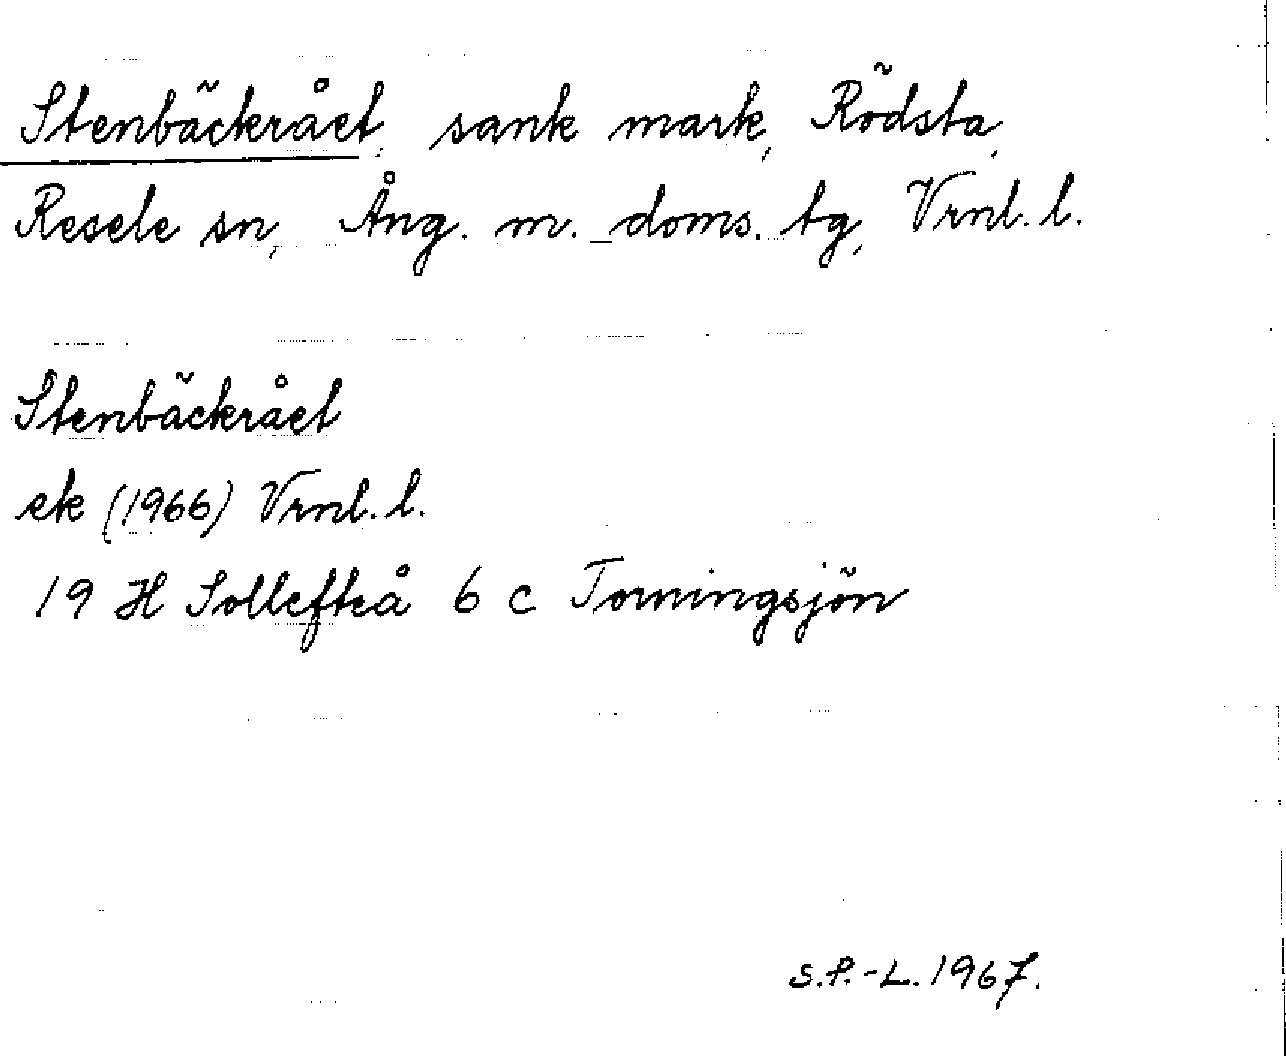 Stenbäckrået, sank mark, Rödsta,
Resele sn, Ång. m. doms. tg, Vrnl. l.
Stenbäckrået
ek (1966) Vrnl. l.
19 H Sollefteå 6 c Torningsjön
S.P.-L. 1967.